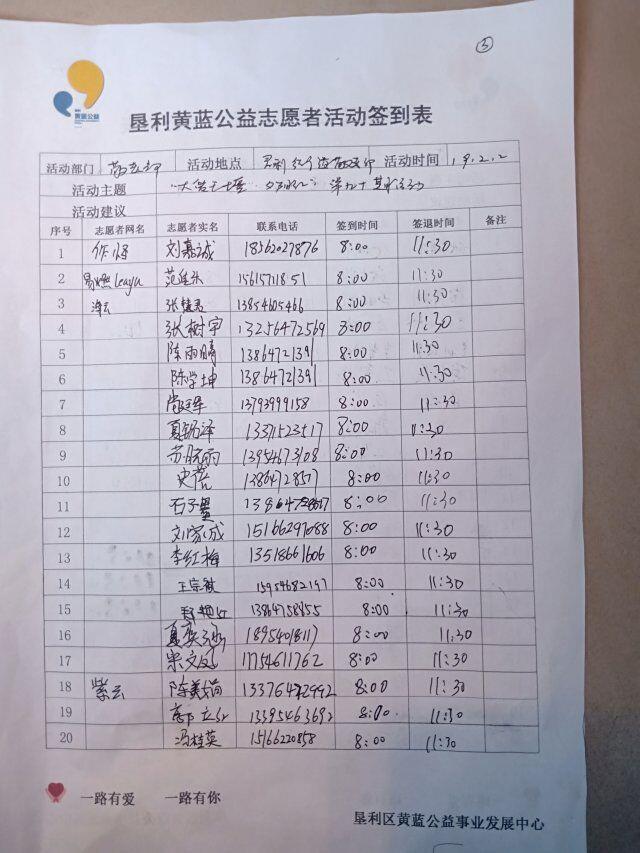 ③
黄蓝公益
垦利黄蓝公益志愿者活动签到表
活动部门 活动地点 垦利 活动时间 19.2.2
活动主题
活动建议
序号 志愿者网名 志愿者实名 联系电话 签到时间 签退时间 备注
1 刘嘉诚 18562027876 8:00 11:30
2 15615711851 8:00 11:30
3 张慧君 13854605466 8:00 11:30
4 张树宇 13256472569 8:00 11:30
5 陈雨晴 13864721391 8:00 11:30
6 陈学坤 13864721391 8:00 11:30
7 13793999158 8:00 11:30
8 13371523517 8:00 11:30
9 13954673108 8:00 11:30
10 史蕊 13864728577 8:00 11:30
11 石子墨 8:00 11:30
12 刘家成 15166297088 8:00 11:30
13 李红梅 13518661606 8:00 11:30
14 王宗敏 15954682197 8:00 11:30
15 13864758455 8:00 11:30
16 8:00 11:30
17 宋文 17754611762 8:00 11:30
18 紫云 陈美娟 8:00 11:30
19 13395463692 8:00 11:30
20 冯桂英 15166220858 8:00 11:30
一路有爱 一路有你
垦利区黄蓝公益事业发展中心